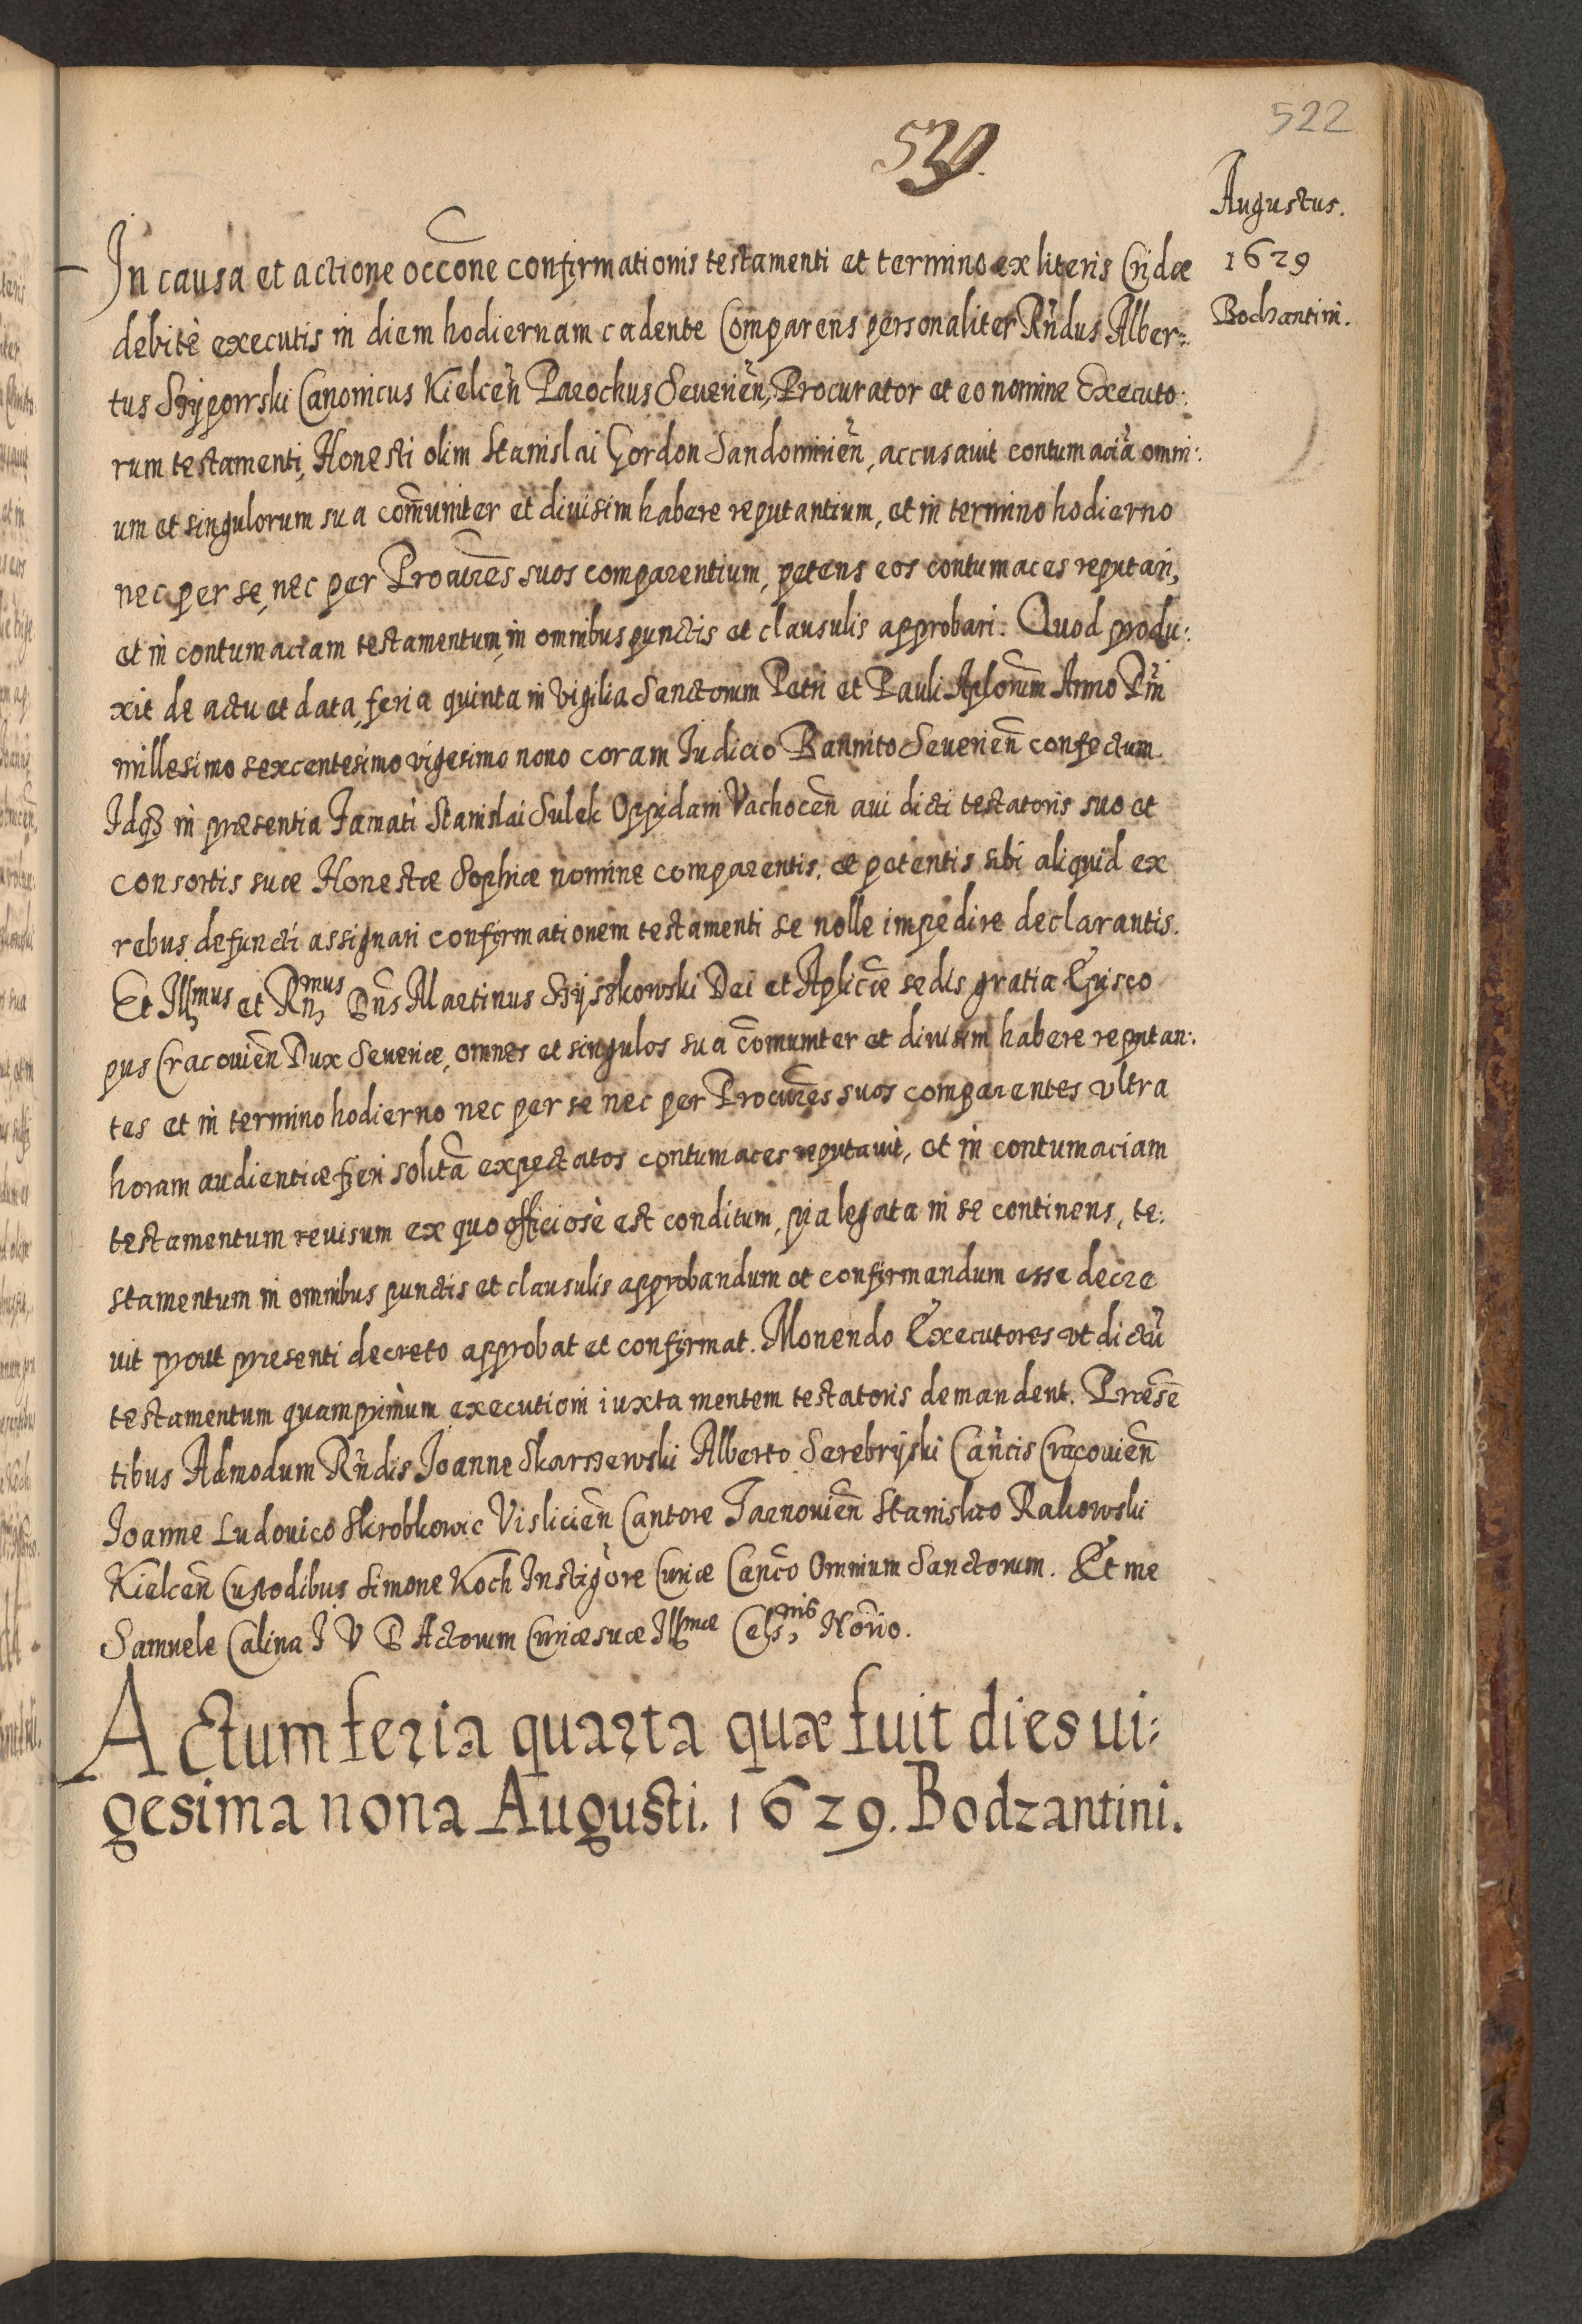 539.
522
Augustus.
1629
Bodzantini.
In causa et actione occōne confirmationis testamenti et termino ex literis Cridæ
debitè executis in diem hodiernam cadente Comparens personaliter Rñdus Alber=
tus Szyporski Canonicus Kielceñ Parochus Seuerieñ, Procurator et eo nomine Executo:
rum testamenti, Honesti olim Stanislai Gordon Sandomirieñ, accusauit contumaciã omni:
um et singulorum sua com̃uniter et diuisim habere reputantium, et in termino hodierno
nec per se, nec per Procur̃es suos comparentium, petens eos contumaces reputari,
et in contumaciam testamentum, in omnibus punctis et clausulis approbari. Quod produ:
xit de actu et data, feria quinta in Vigilia Sanctorum Petri et Pauli Aplorum̃ Anno Dñi
millesimo sexcentesimo vigesimo nono coram Iudicio Bannito Seuerieñ confectum.
Idqꝫ in præsentia Famati Stanislai Sulek Oppidani Vachoceñ aui dicti testatoris suo et
consortis suæ Honestæ Sophiæ nomine comparentis, et petentis sibi aliquid ex
rebus defuncti assignari confirmationem testamenti se nolle impedire declarantis.
Et Illmus et Rñmus Dñs Martinus Szyszkowski Dei et Aplicæ sedis gratia Episco
pus Cracouieñ Dux Seueriæ, omnes et singulos sua com̃uniter et diuisim habere reputan:
tes et in termino hodierno nec per se nec per Procur̃es suos comparentes vltra
horam audientiæ fieri solitã expectatos contumaces reputauit, et in contumaciam
testamentum reuisum ex quo officiosè est conditum, pia legata in se continens, te:
stamentum in omnibus punctis et clausulis approbandum et confirmandum esse decre
uit prout præsenti decreto approbat et confirmat. Monendo Executores vt dictũ
testamentum quamprimùm executioni iuxta mentem testatoris demandent. Præsẽ
tibus Admodum Rñdis Ioanne Skarszewski Alberto Serebryski Cañcis Cracouieñ
Ioanne Ludouico Skrobkowic Vislicieñ Cantore Tarnouieñ Stanislao Rakowski
Kielceñ Custodibus Simone Koch Instigõre Curiæ Cañco Omnium Sanctorum. Et me
Samuele Calina I V D Actorum Curiæ suæ Illmæ Celsnis Nõrio.
Actum feria quarta quæ fuit dies ui:
gesima nona Augusti. 1629. Bodzantini.